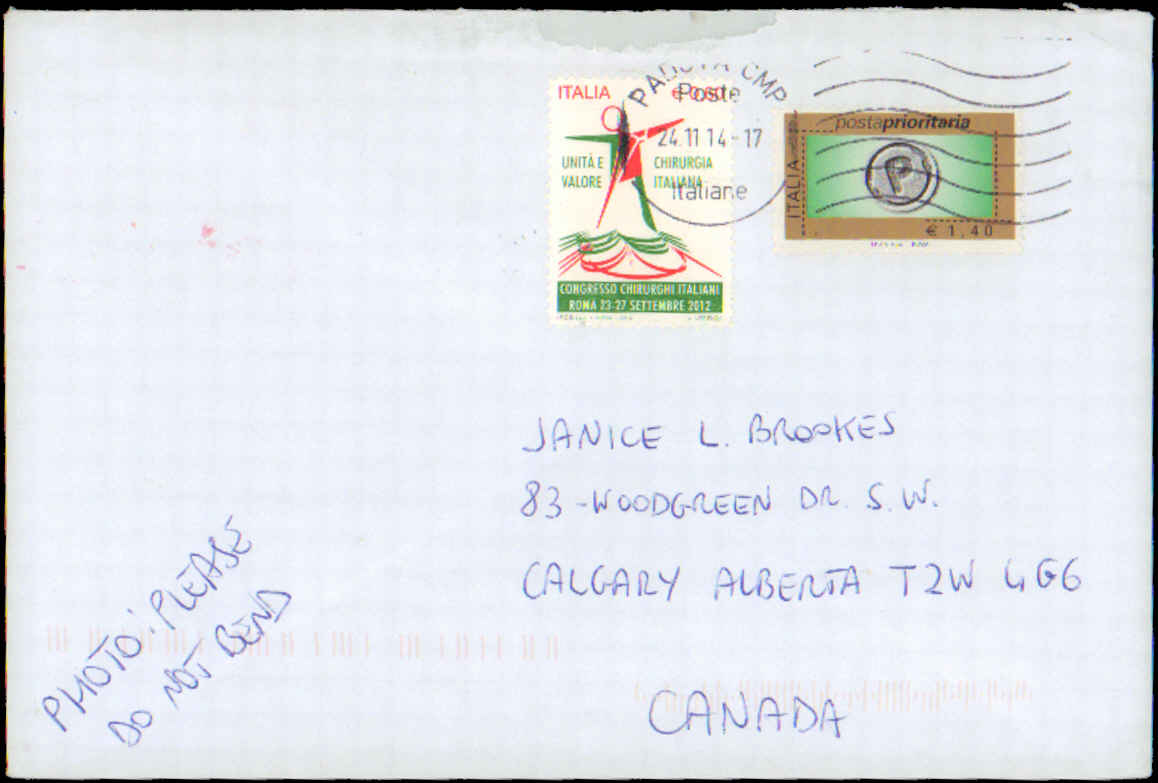 PADOVA CMP
Poste
24.11 14-17
Italiane
ITALIA € 0,60
UNITÀ E VALORE
CHIRURGIA ITALIANA
CONGRESSO CHIRURGHI ITALIANI
ROMA 23-27 SETTEMBRE 2012
postaprioritaria
ITALIA
P
€ 1,40
JANICE L. BROOKES
83-WOODGREEN DR. S.W.
CALGARY ALBERTA T2W 4G6
CANADA
PHOTO! PLEASE
DO NOT BEND